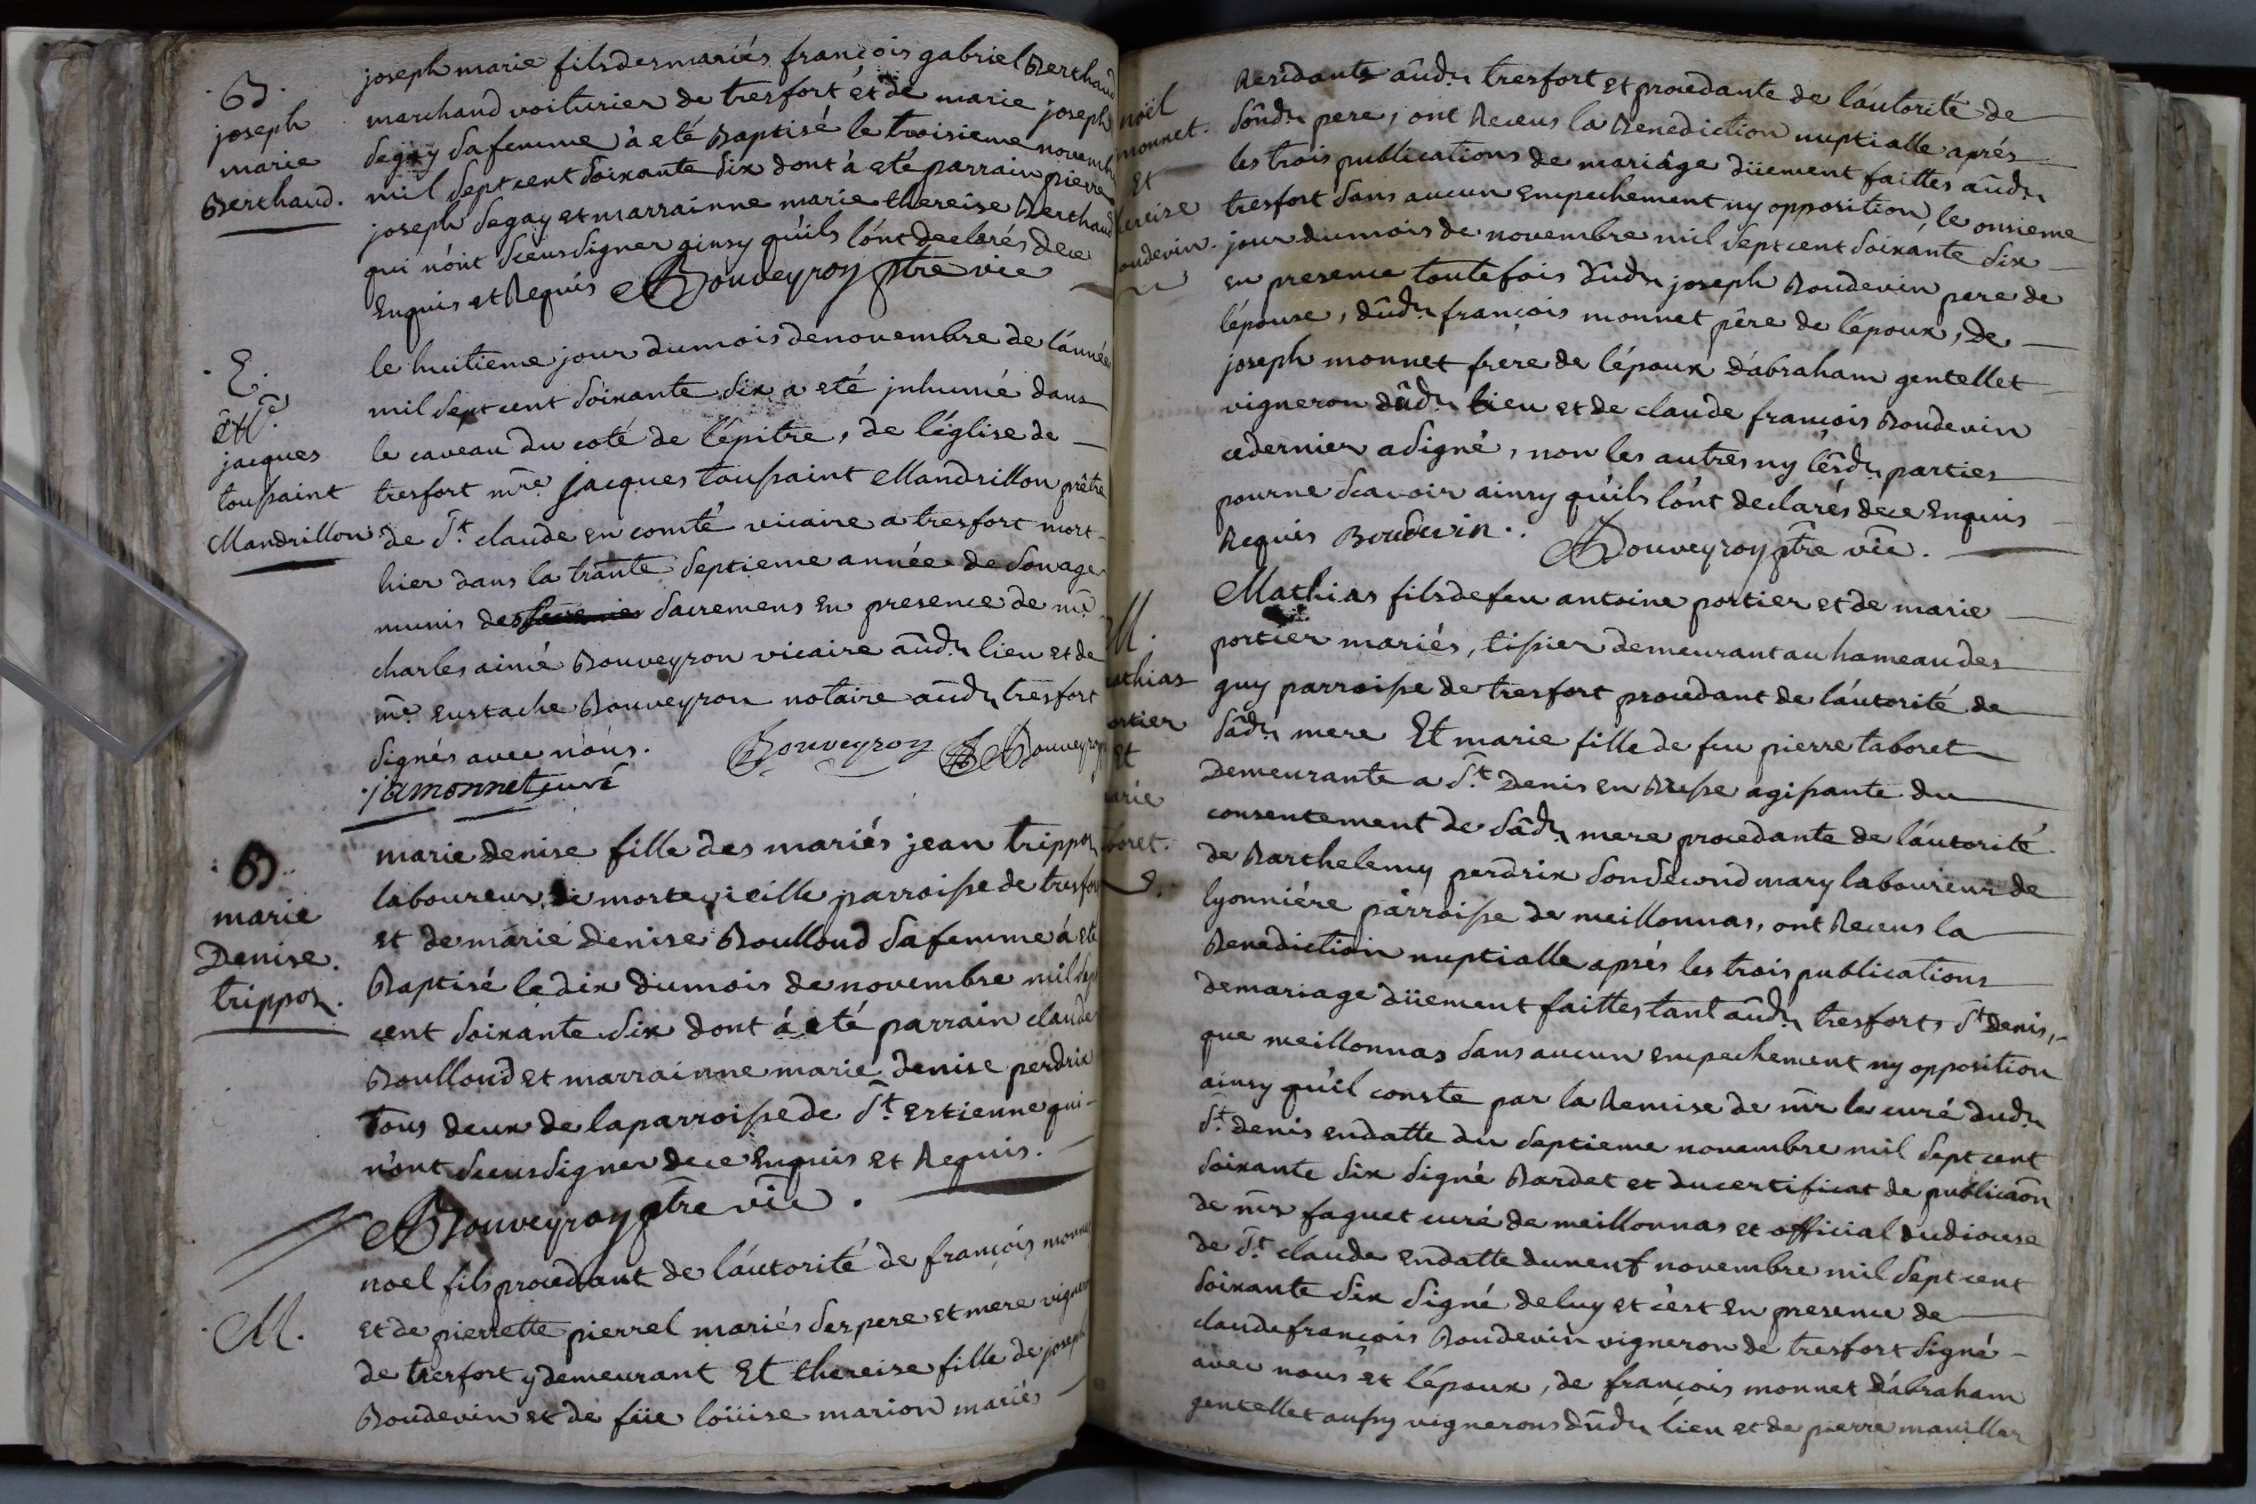 B.
joseph
marie
Berthaud.
joseph marie fils des mariés françois gabriel Berthaud
marchand voiturier de tresfort et de marie joseph
segay sa femme à eté Baptisé le troisieme novemb
mil sept cent soixante six dont à eté parrain pierre
joseph segay et marrainne marie thereise Berthaud
qui n'ont sceus signer ginsy qu'ils l'ont declarés de ce
Enquis et Requis Bouveyron ptre vic
E.
jacques
toussaint
Mandrillon
le huitieme jour du mois de novembre de l'année
mil sept cent soixante six a eté jnhumé dans
le caveau du coté de l'épitre, de l'église de
tresfort mre jacques toussaint Mandrillon prêtre
de St claude en comté vicaire a tresfort mort
hier dans la trante septieme année de son age
munis des sacremens en presence de mre
charles aimé Bouveyron vicaire aûd. lieu et de
me Eustache Bouveyron notaire aûd. tresfort
signés avec nous. Bouveyron Bouveyron
jamonnet curé
B.
marie
Denise.
trippoz.
marie denise fille des mariés jean trippoz
laboureur de mortevieille parroisse de tresfor
et de marie denise Boulloud sa femme à eté
Baptisé le dix du mois de novembre mil sept
cent soixante six dont à eté parrain claude
Boulloud et marrainne marie denise perdrix
tous deux de la parroisse de St Estienne qui
n'ont sceus signer de ce Enquis et Requis.
Bouveyron ptre vic.
M.
noel fils procedant de l'áutorité de françois monne
et de pierrette pierrel mariés ses pere et mere vigneron
de tresfort y demeurant Et thereise fille de joseph
Boudevin et de füe loüise marion mariés
noël
monnet.
Et
tereise
oudevin.
Residante aûd. tresfort et procedante de l'áutorité de
sônd. pere, ont Receus la Benediction nuptialle aprés
les trois publications de mariâge düement faittes aûd.
tresfort sans aucun empechement ny opposition, le onsieme
jour du mois de novembre mil sept cent soixante six
en presence toutefois dûd. joseph Boudevin pere de
l'épouse, dûd. françois monnet pêre de l'époux, de
joseph monnet frere de l'époux d'abraham gentellet
vigneron dûd. lieu et de claude françois Boudevin
ce dernier a signé, non les autres ny lêsd. parties
pour ne scavoir ainsy qu'ils l'ont declarés de ce Enquis
Requis Boudevin. Bouveyron ptre vic.
M.
athias
ortier
Et
arie
boret.
Mathias fils de feu antoine portier et de marie
portier mariés, tissier demeurant au hameau des
guy parroisse de tresfort procedant de l'áutorité de
sâd. mere Et marie fille de feu pierre taboret
Demeurante a St Denis en Bresse agissante du
consentement de sâd. mere procedante de l'áutorité
de Barthelemy perdrix son second mary laboureur de
lyonniére parroisse de meillonnas, ont Receus la
Benediction nuptialle aprés les trois publications
de mariage düement faittes tant aûd. tresfort, St Denis,
que meillonnas sans aucun empechement ny opposition
ainsy qu'il conste par la Remise de mr le curé dud.
St denis en datte du septieme novembre mil sept cent
soixante six signé Bardet et du certificat de publicaôn
de mr faguet curé de meillonnas et official du diocese
de St claude en datte du neuf novembre mil sept cent
soixante six signé de luy et c'est en presence de
claude françois Boudevin vigneron de tresfort signé
avec nous et l'époux, de françois monnet d'abraham
gentellet aussy vignerons dûd. lieu et de pierre